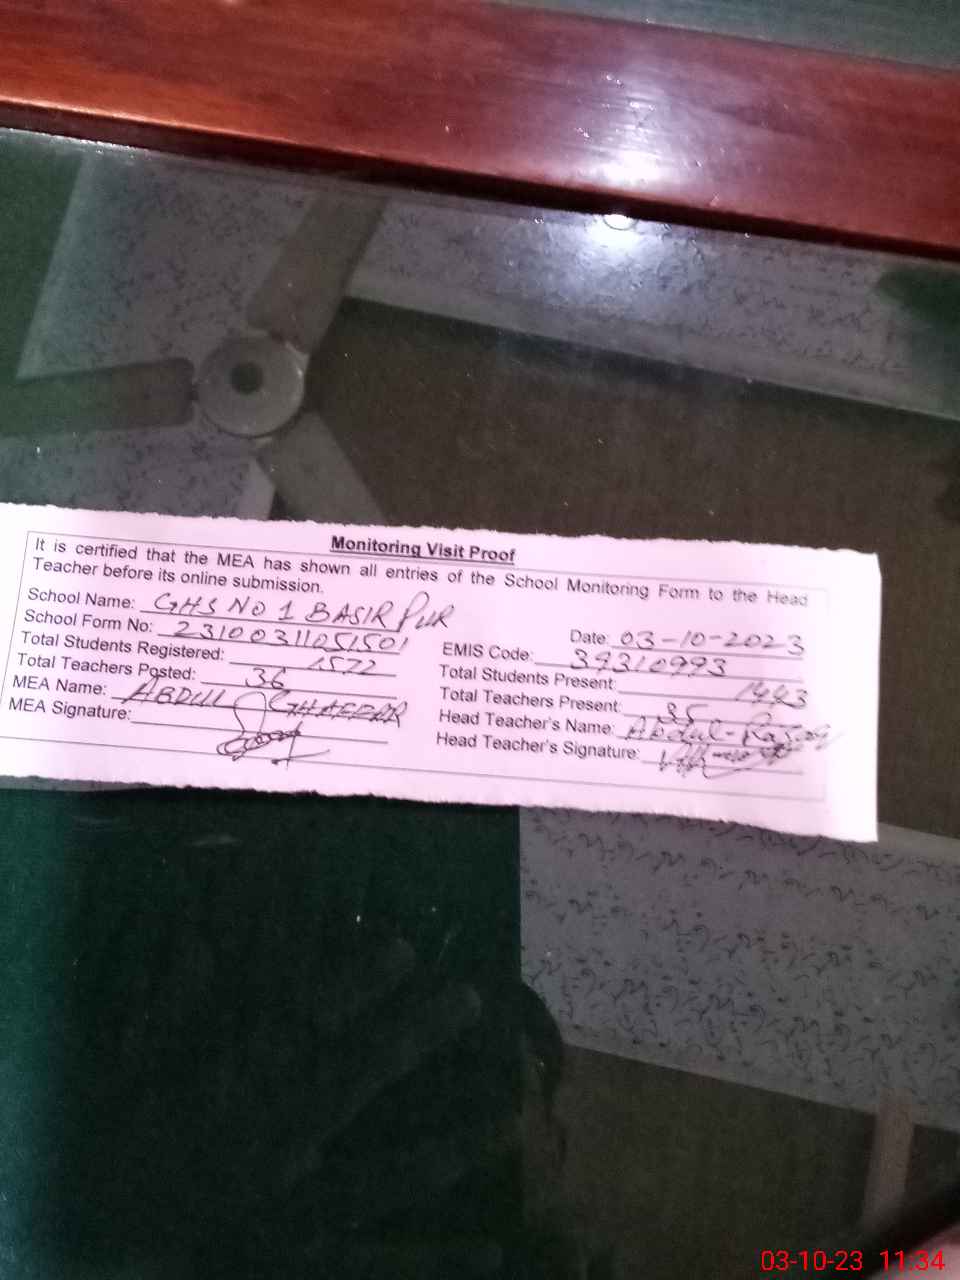 Monitoring Visit Proof
It is certified that the MEA has shown all entries of the School Monitoring Form to the Head
Teacher before its online submission.
School Name: GHS NO 1 BASIR PUR
Date: 03-10-2023
School Form No: 23100311051501
EMIS Code: 39310993
Total Students Registered: 1572
Total Students Present: 1443
Total Teachers Posted: 36
Total Teachers Present: 35
MEA Name: ABDUL GHAFFAR
Head Teacher's Name: Abdul-Razzaq
MEA Signature:
Head Teacher's Signature:
03-10-23 11:34